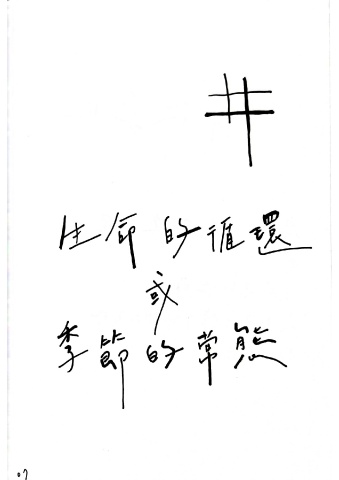 生命的循環
或
季節的常態
07